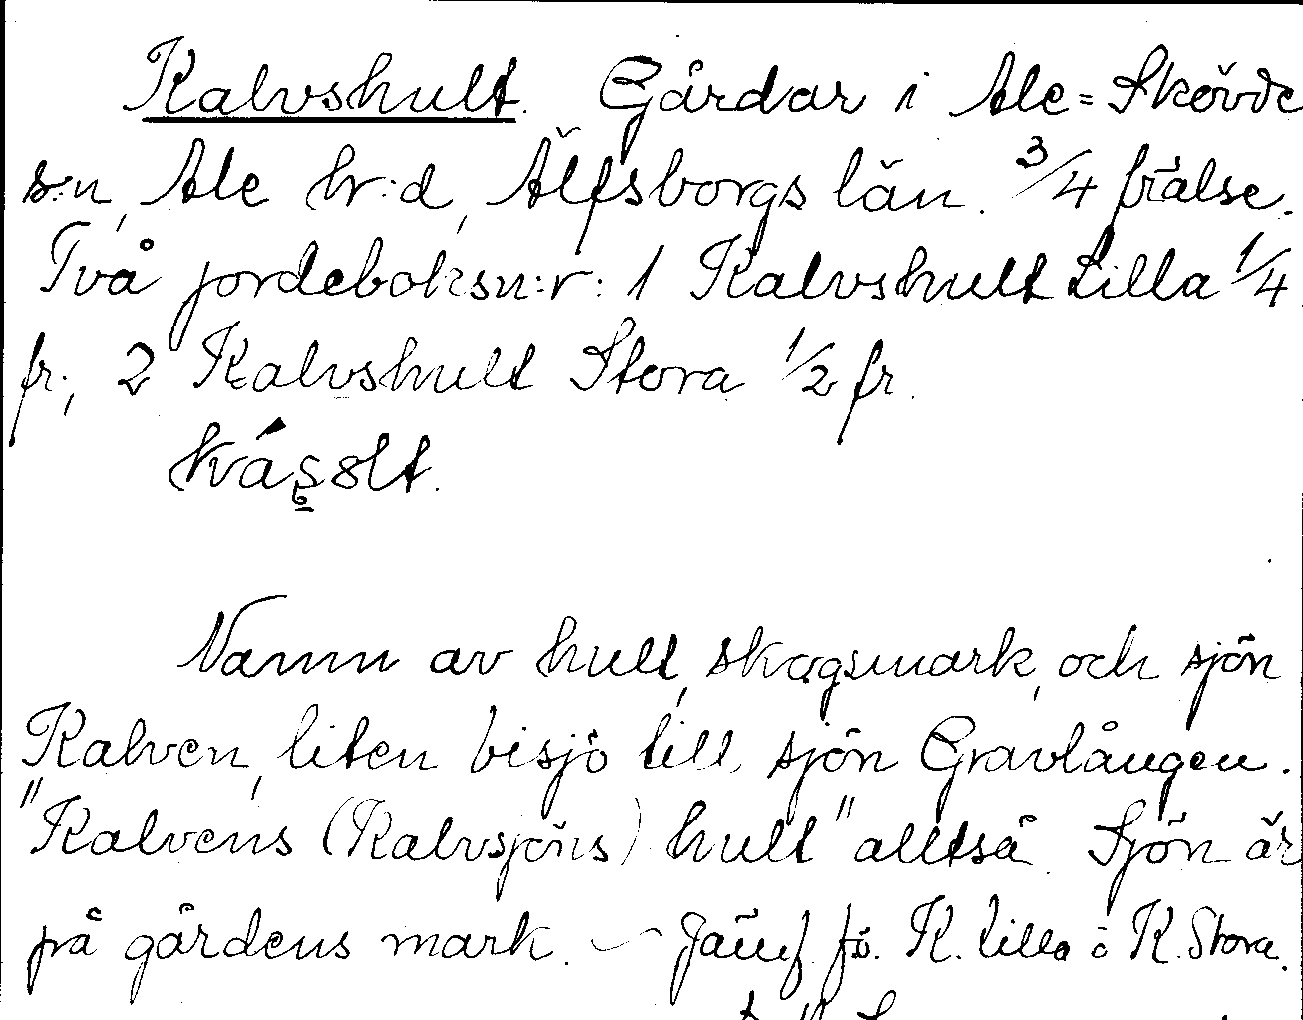 Kalvshult. Gårdar i Ale=Skövde
s:n, Ale hr:d, Älfsborgs län. 3/4 frälse.
Två jordeboksn:r: 1 Kalvshult Lilla 1/4
fr., 2 Kalvshult Stora 1/2 fr.

Namn av hult, skogsmark, och sjön
Kalven, liten bisjö till sjön Gravlången.
"Kalvens (Kalvsjöns) hult" alltså. Sjön är
på gårdens mark. — Jämf. fö. K. Lilla o K. Stora.